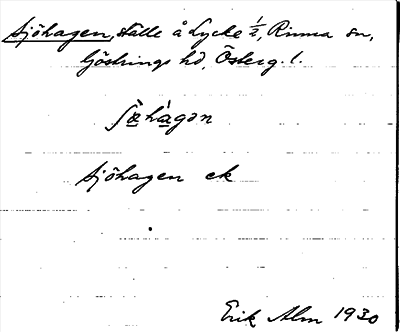 Sjöhagen, ställe å Lycke ½, Rinna sn,
Göstrings hd, Österg. l.
ʃöhàgən
Sjöhagen ek
Erik Alm 1930